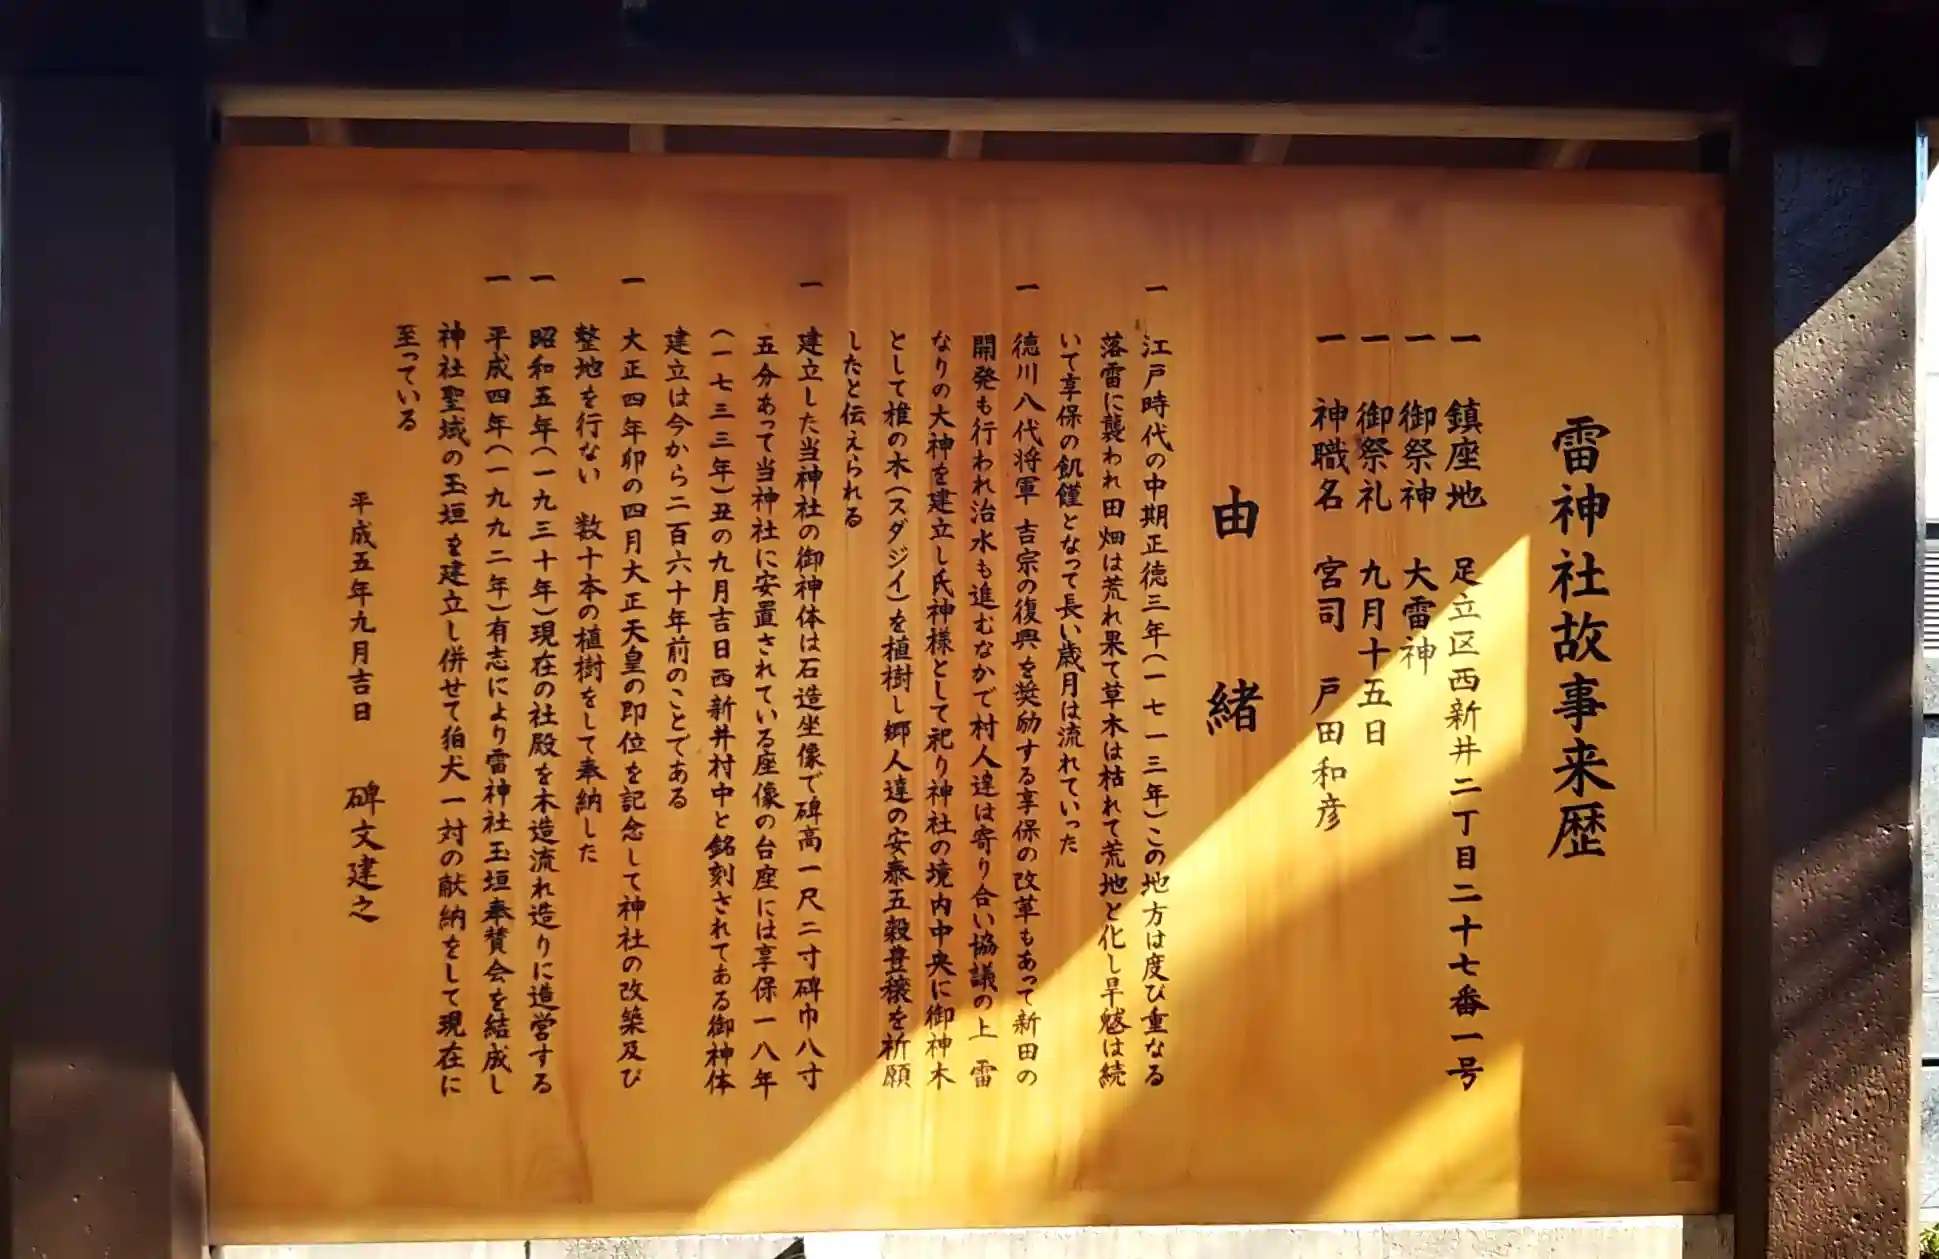 雷神社故事来歴
一 鎮座地 足立区西新井二丁目二十七番一号
一 御祭神 大雷神
一 御祭礼 九月十五日
一 神職名 宮司 戸田和彦
由緒
一 江戸時代の中期正徳三年(一七一三年)この地方は度び重なる
落雷に襲われ田畑は荒れ果て草木は枯れて荒地と化し旱魃は続
いて享保の飢饉となって長い歳月は流れていった
一 徳川八代将軍 吉宗の復興を奨励する享保の改革もあって新田の
開発も行われ治水も進むなかで村人達は寄り合い協議の上 雷
なりの大神を建立し氏神様として祀り神社の境内中央に御神木
として椎の木(スダジイ)を植樹し郷人達の安泰五穀豊穣を祈願
したと伝えられる
一 建立した当神社の御神体は石造坐像で碑高一尺二寸碑巾八寸
五分あって当神社に安置されている座像の台座には享保一八年
(一七三三年)丑の九月吉日西新井村中と銘刻されてある御神体
建立は今から二百六十年前のことである
一 大正四年卯の四月大正天皇の即位を記念して神社の改築及び
整地を行ない 数十本の植樹をして奉納した
一 昭和五年(一九三十年)現在の社殿を木造流れ造りに造営する
一 平成四年(一九九二年)有志により雷神社玉垣奉賛会を結成し
神社聖域の玉垣を建立し併せて狛犬一対の献納をして現在に
至っている
平成五年九月吉日 碑文建之